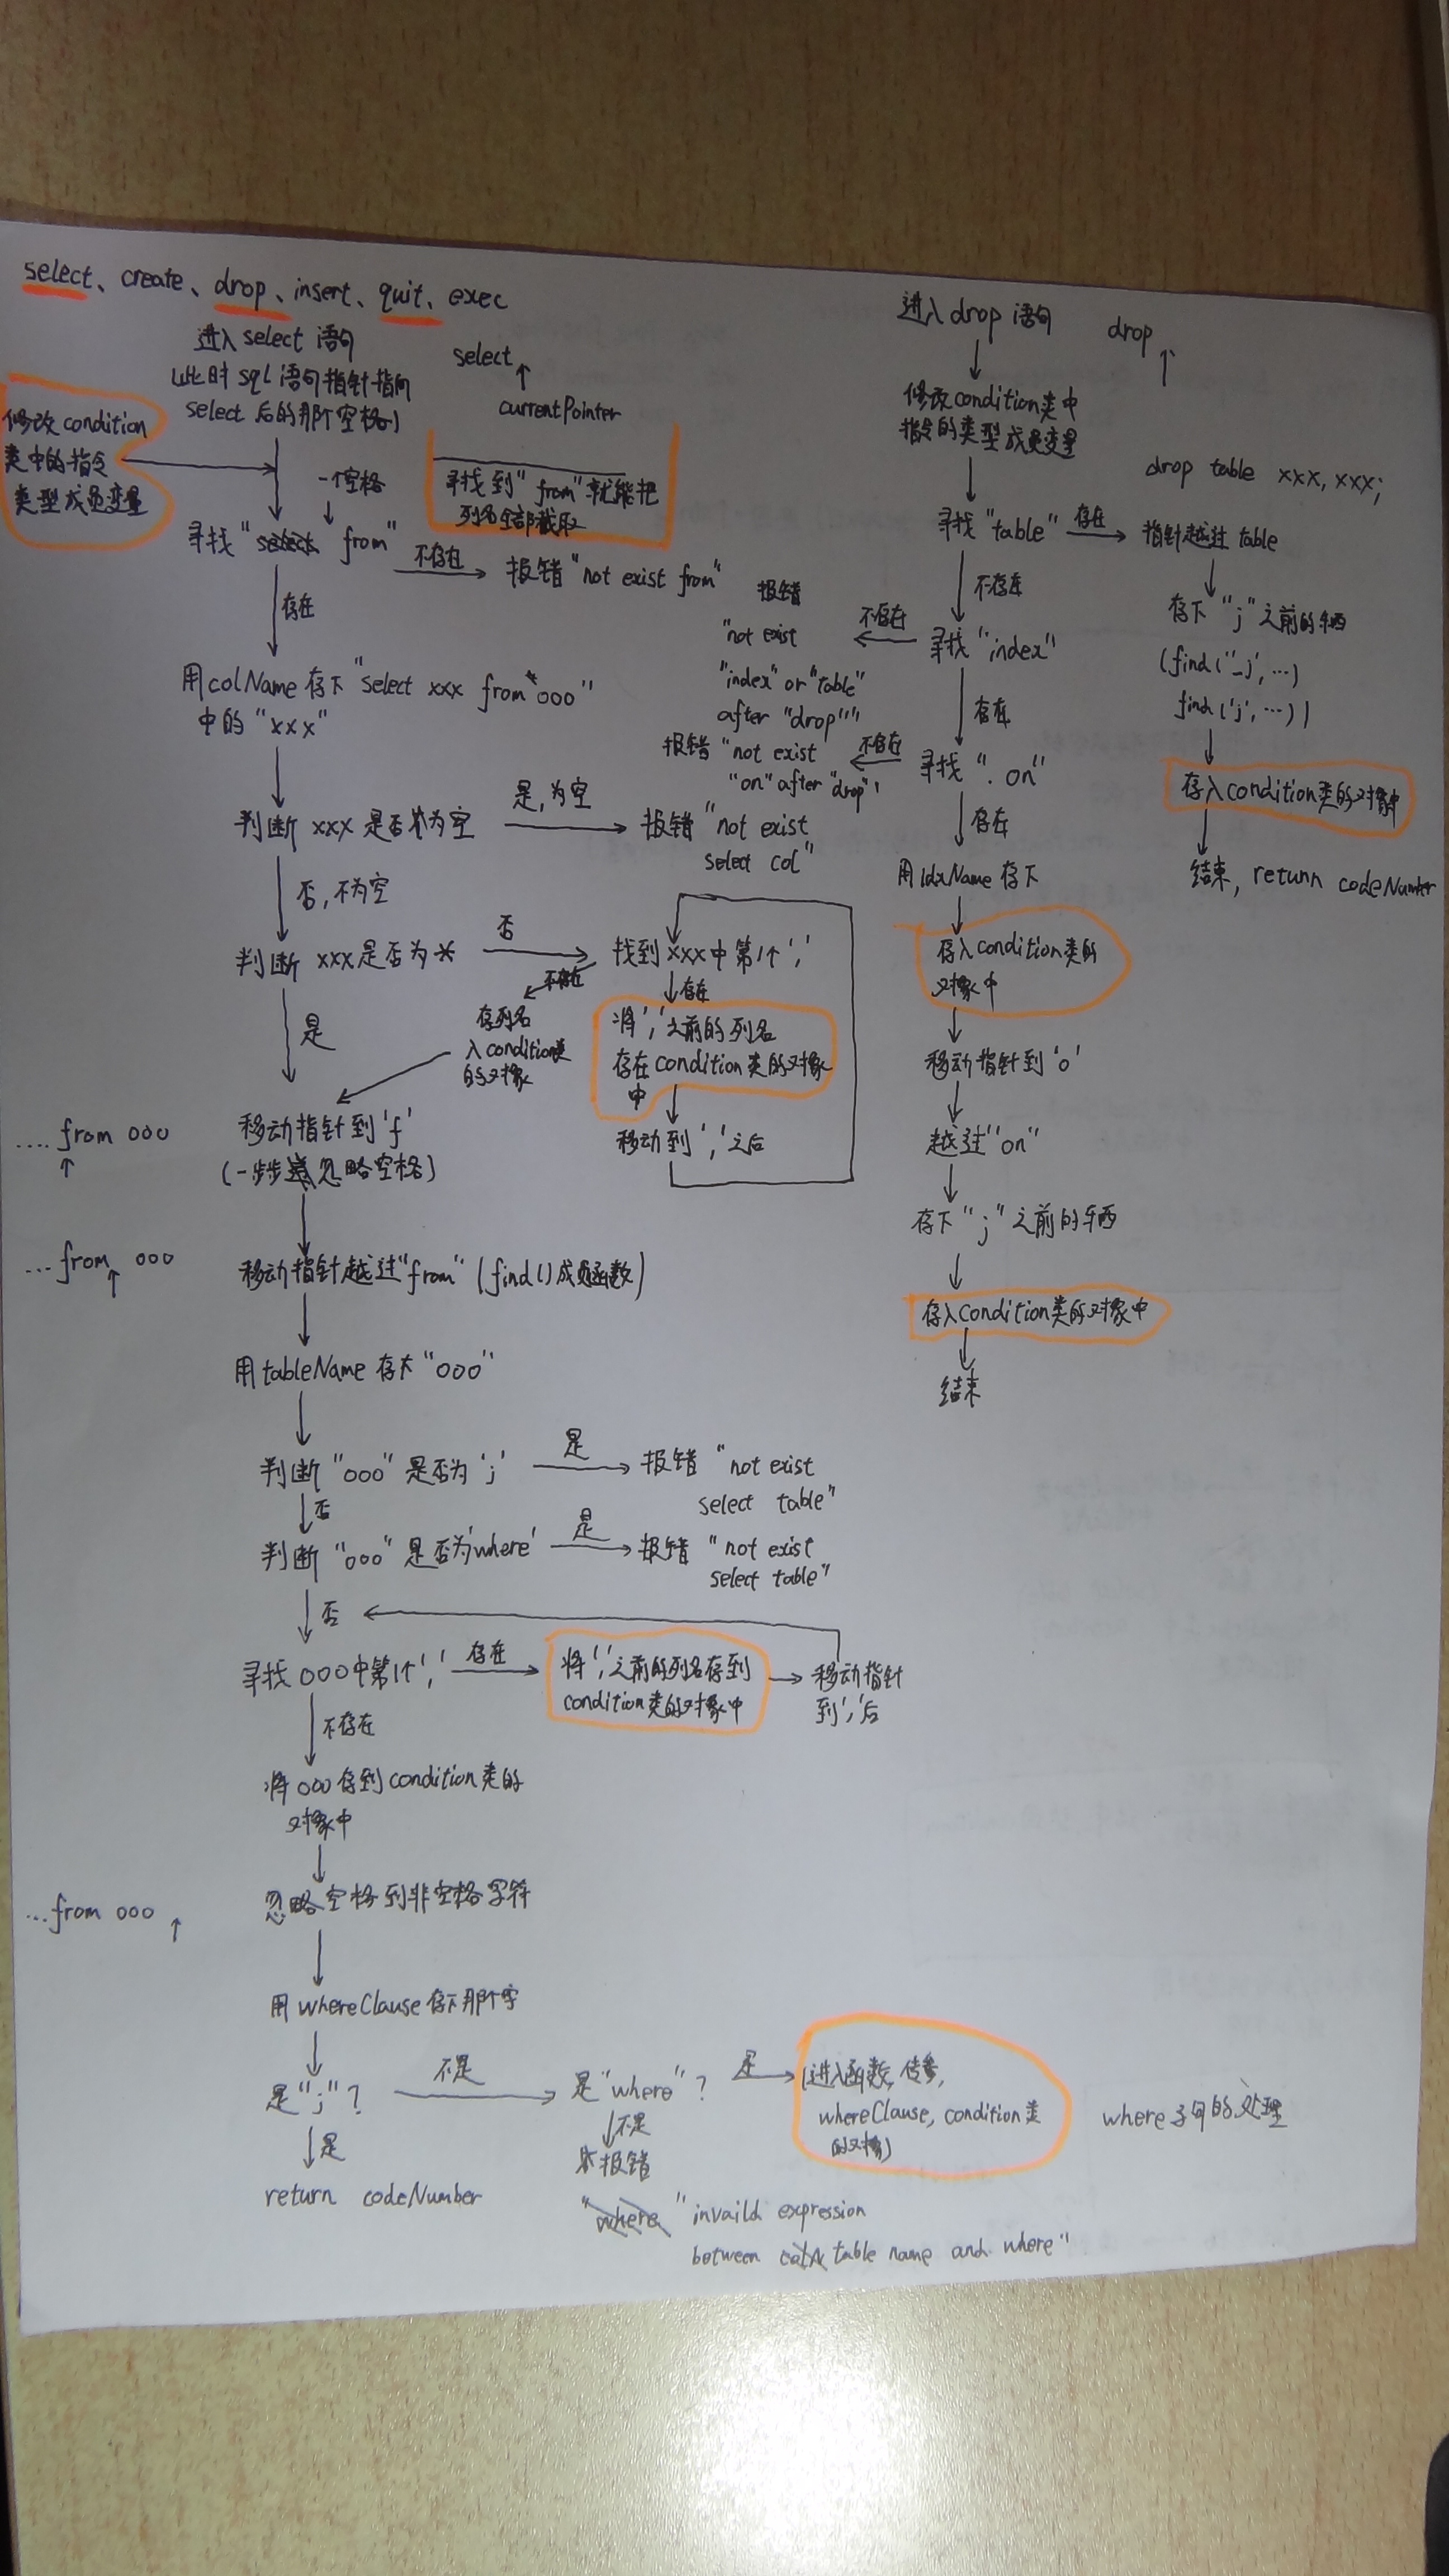 select、create、drop、insert、quit、exec
进入 select 语句
(此时 sql 语句指针指向
select 后的那个空格)
select
currentPointer
修改 condition
类中的指令
类型成员变量
一个空格
寻找到" from"就能把
列名全部截取
寻找 " from"
不存在
报错 "not exist from"
存在
用 colName 存下 "select xxx from ooo"
中的 "xxx"
判断 xxx 是否为空
是,为空
报错 "not exist
select col"
否,不为空
判断 xxx是否为 *
否
找到 xxx中第1个','
不存在
存列名
入condition类
的对象
存在
将','之前的列名
存在condition类的对象
中
移动到','之后
是
.... from ooo
移动指针到'f'
(一步步忽略空格)
... from ooo
移动指针越过"from" (find()成员函数)
用 tableName 存下 "ooo"
判断 "ooo" 是否为 ';'
是
报错 "not exist
select table"
否
判断 "ooo" 是否为'where'
是
报错 "not exist
select table"
否
寻找 ooo中第1个','
存在
将','之前的列名存到
condition类的对象中
移动指针
到','后
不存在
将 ooo 存到 condition 类的
对象中
...from ooo
忽略空格到非空格字符
用 whereClause 存下那个字
是";"?
不是
是"where"?
是
(进入函数,传参,
whereClause, condition类
的对象)
where子句的处理
是
return codeNumber
不是
报错
"invaild expression
between table name and where"
进入 drop 语句
drop
修改condition类中
指令的类型成员变量
drop table xxx, xxx;
寻找 "table"
存在
指针越过 table
不存在
存下 ";"之前的东西
(find('_;', ...)
find(';', ...))
存入condition类的对象中
结束, return codeNumber
寻找 "index"
不存在
报错
"not exist
"index" or "table"
after "drop""
存在
寻找 ". on"
不存在
报错 "not exist
"on" after "drop"
存在
用 idxName 存下
存入condition类的
对象中
移动指针到'o'
越过"on"
存下 ";" 之前的东西
存入condition类的对象中
结束